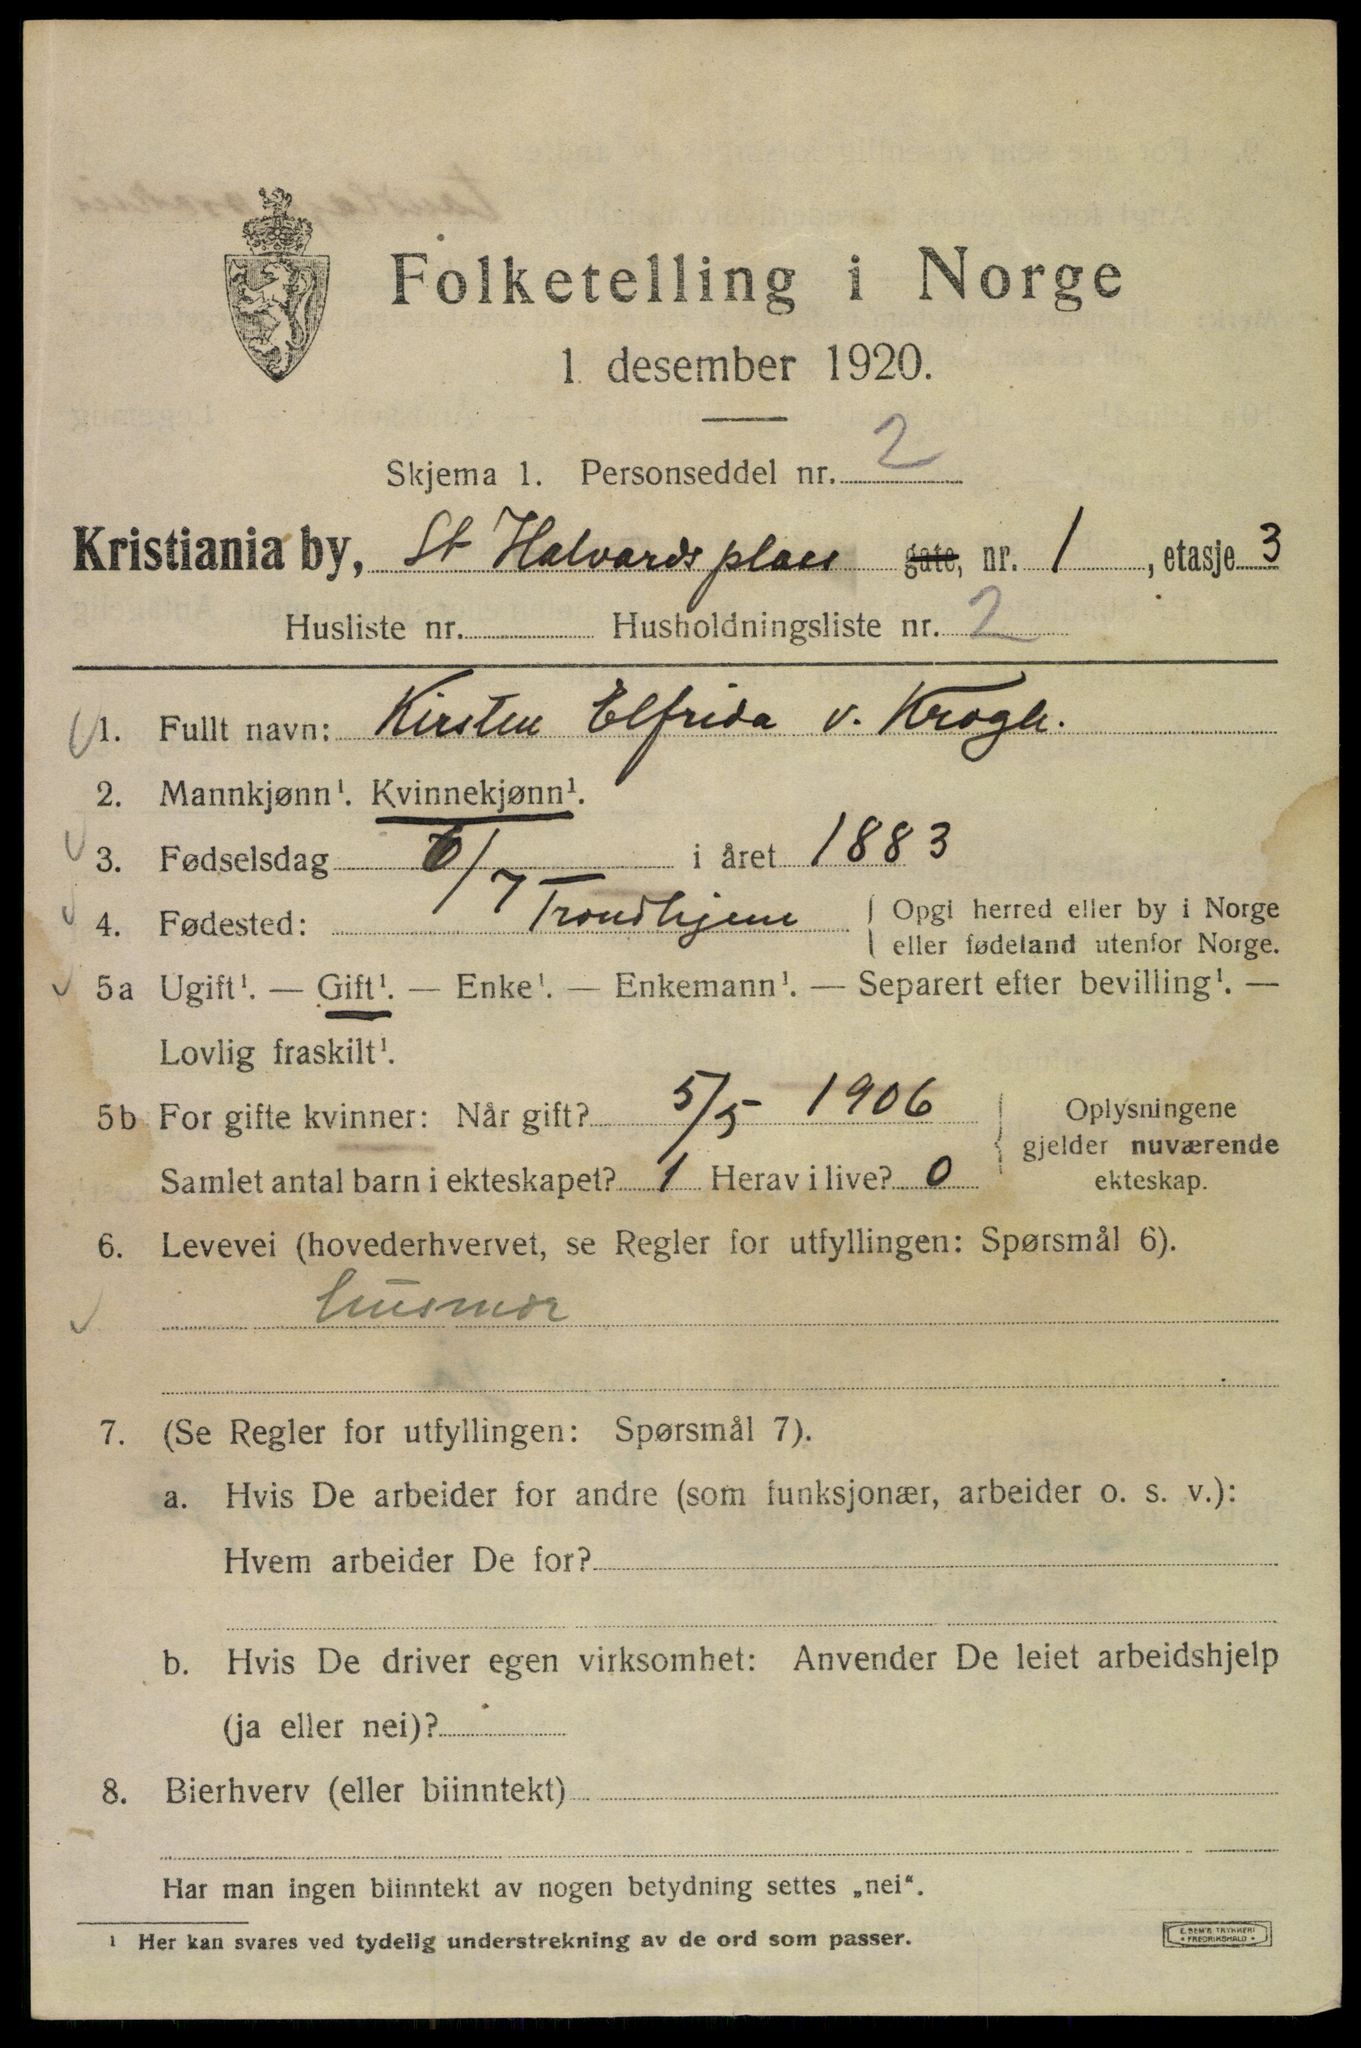 Folketelling i Norge
1 desember 1920.
Skjema 1. Personseddel nr. 2
Kristiania by, St Halvards plass gate, nr. 1, etasje 3
Husliste nr. Husholdningsliste nr. 2
1. Fullt navn: Kirsten Elfrida v. Krogh.
2. Mannkjønn¹. Kvinnekjønn¹.
3. Fødselsdag 6/7 i året 1883
4. Fødested: Trondhjem { Opgi herred eller by i Norge
eller fødeland utenfor Norge.
5a Ugift¹. — Gift¹. — Enke¹. — Enkemann¹. — Separert efter bevilling¹. —
Lovlig fraskilt¹.
5b For gifte kvinner: Når gift? 5/5 1906 Oplysningene
gjelder nuværende
Samlet antal barn i ekteskapet? 1 Herav i live? 0 ekteskap.
6. Levevei (hovederhvervet, se Regler for utfyllingen: Spørsmål 6).
husmor
7. (Se Regler for utfyllingen: Spørsmål 7).
a. Hvis De arbeider for andre (som funksjonær, arbeider o. s. v.):
Hvem arbeider De for?
b. Hvis De driver egen virksomhet: Anvender De leiet arbeidshjelp
(ja eller nei)?
8. Bierhverv (eller biinntekt)
Har man ingen biinntekt av nogen betydning settes „nei“.
¹ Her kan svares ved tydelig understrekning av de ord som passer.
E. SEM'S TRYKKERI
FREDRIKSHALD